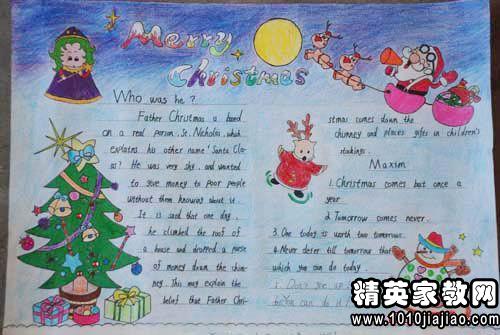 Merry
Christmas
Who was he?
Father Christmas is based
on a real person, St. Nicholas, which
explains his other name 'Santa Cla-
os? He was very shy, and wanted
to give money to poor people
without them knowing about it.
It is said that one day,
he climbed the roof of
a house and dropped a purse
of money down the chim-
ney. This may explain the
belief that Father Chri-
stmas comes down the
chimney and places gifts in children's
stockings.
Maxim
1. Christmas comes but once a
year
2. Tomorrow comes never.
3. One today is worth two tomorrows.
4. Never defer till tomorrow that
which you can do today.
精英家教网
www.1010jiajiao.com